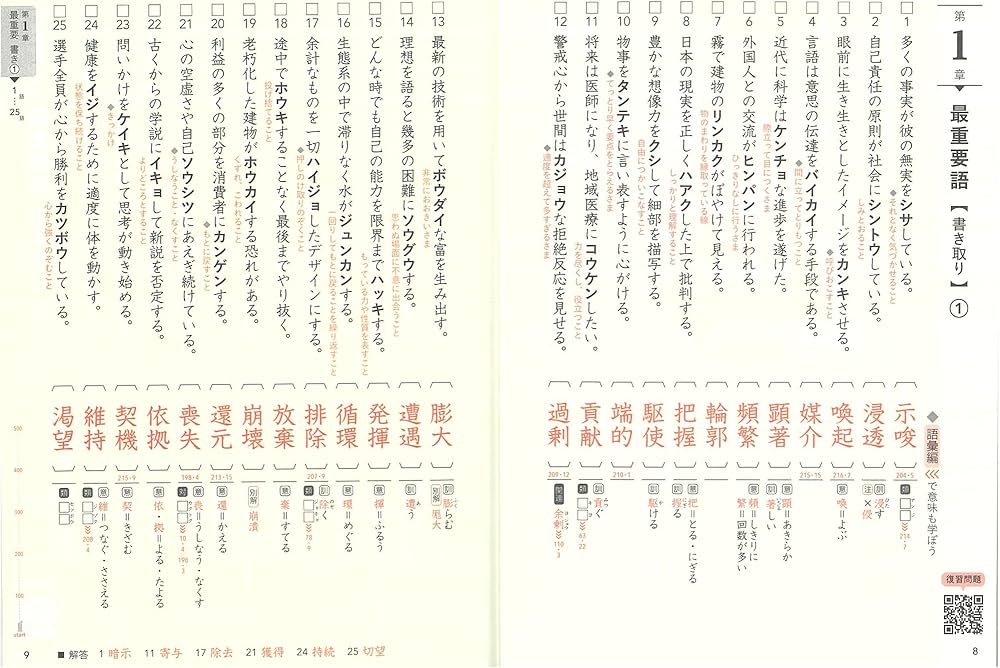 第1章 最重要語【書き取り】①
語彙編 で意味も学ぼう
1 多くの事実が彼の無実をシサしている。
それとなく気づかせること
示唆
204・5
類 アンジ 214・7
2 自己責任の原則が社会にシントウしている。
しみとおること
浸透
訓 浸す
注 ×侵
3 眼前に生き生きとしたイメージをカンキさせる。
呼びおこすこと
喚起
216・2
意 喚=よぶ
4 言語は意思の伝達をバイカイする手段である。
間に立ってとりもつこと
媒介
215・15
5 近代に科学はケンチョな進歩を遂げた。
際立って目につくさま
顕著
意 顕=あきらか
訓 著しい
6 外国人との交流がヒンパンに行われる。
ひっきりなしに行うさま
頻繁
意 頻=しきりに
繁=回数が多い
7 霧で建物のリンカクがぼやけて見える。
物のまわりを縁取っている線
輪郭
8 日本の現実を正しくハアクした上で批判する。
しっかりと理解すること
把握
意 把=とる・にぎる
訓 握る
9 豊かな想像力をクシして細部を描写する。
自由につかいこなすこと
駆使
訓 駆ける
10 物事をタンテキに言い表すように心がける。
てっとり早く要点をとらえるさま
端的
210・1
11 将来は医師になり、地域医療にコウケンしたい。
力を尽くし、役立つこと
貢献
訓 貢ぐ
類 キヨ 63・22
12 警戒心から世間はカジョウな拒絶反応を見せる。
適度を超えて多すぎるさま
過剰
209・12
関連 余剰 110・3
復習問題
8
第1章 最重要 書き① 1語…25語
13 最新の技術を用いてボウダイな富を生み出す。
非常におおきいさま
膨大
訓 膨らむ
別解 厖大
14 理想を語ると幾多の困難にソウグウする。
思わぬ場面に不意に出会うこと
遭遇
訓 遭う
15 どんな時でも自己の能力を限界までハッキする。
もっている力や性質を表すこと
発揮
意 揮=ふるう
16 生態系の中で滞りなく水がジュンカンする。
一回りしてもとに戻ることを繰り返すこと
循環
意 環=めぐる
17 余計なものを一切ハイジョしたデザインにする。
押しのけ取りのぞくこと
排除
207・9
訓 除く
類 78・9
18 途中でホウキすることなく最後までやり抜く。
投げ捨てること
放棄
意 棄=すてる
19 老朽化した建物がホウカイする恐れがある。
くずれ、こわれること
崩壊
別解 崩潰
20 利益の多くの部分を消費者にカンゲンする。
もとに戻すこと
還元
213・15
意 還=かえる
21 心の空虚さや自己ソウシツにあえぎ続けている。
うしなうこと・なくすこと
喪失
198・4
意 喪=うしなう・なくす
対 カクトク 10・4 196・3
22 古くからの学説にイキョして新説を否定する。
よりどころとすること
依拠
意 依・拠=よる・たよる
23 問いかけをケイキとして思考が動き始める。
きっかけ
契機
215・9
意 契=きざむ
24 健康をイジするために適度に体を動かす。
状態を保ち続けること
維持
意 維=つなぐ・ささえる
類 ジゾク 208・4
25 選手全員が心から勝利をカツボウしている。
心から強くのぞむこと
渇望
類 セツボウ
500
400
300
200
100
start
9
■解答 1 暗示 11 寄与 17 除去 21 獲得 24 持続 25 切望